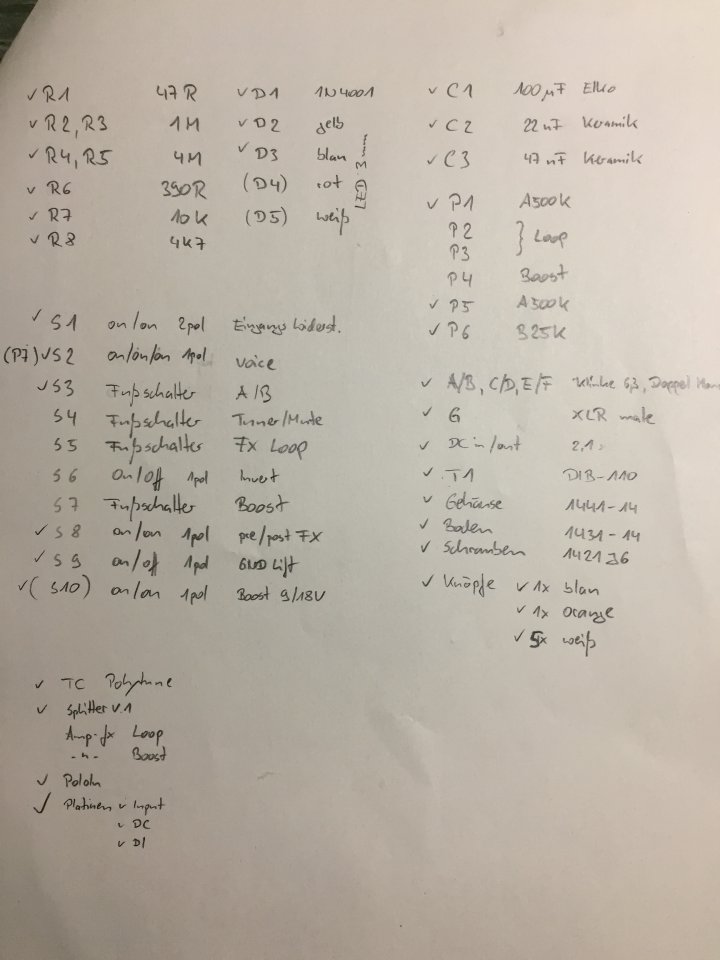 ✓ R1 47R
✓ R2, R3 1M
✓ R4, R5 4M
✓ R6 390R
✓ R7 10k
✓ R8 4k7
✓ D1 1N4001
✓ D2 gelb
✓ D3 blau
(D4) rot
(D5) weiß
LED 3mm
✓ C1 100µF Elko
✓ C2 22nF Keramik
✓ C3 47nF Keramik
✓ P1 A500k
P2
P3 } Loop
P4 Boost
✓ P5 A500k
✓ P6 B25k
✓ S1 on/on 2pol Eingangswiderst.
(P7) ✓ S2 on/on/on 1pol voice
✓ S3 Fußschalter A/B
S4 Fußschalter Tuner/Mute
S5 Fußschalter FX Loop
S6 on/off 1pol Invert
S7 Fußschalter Boost
✓ S8 on/on 1pol pre/post FX
✓ S9 on/off 1pol GND Lift
✓ (S10) on/on 1pol Boost 9/18V
✓ A/B, C/D, E/F Klinke 6,3, Doppel
✓ G XLR male
✓ DC in/out 2,1
✓ T1 DIB-110
✓ Gehäuse 1441-14
✓ Boden 1431-14
✓ Schrauben 1421J6
✓ Knöpfe ✓ 1x blau
✓ 1x orange
✓ 5x weiß
✓ TC Polytune
✓ Splitter V.1
Amp-fx Loop
-"- Boost
✓ Pololu
✓ Platinen ✓ Input
✓ DC
✓ DI